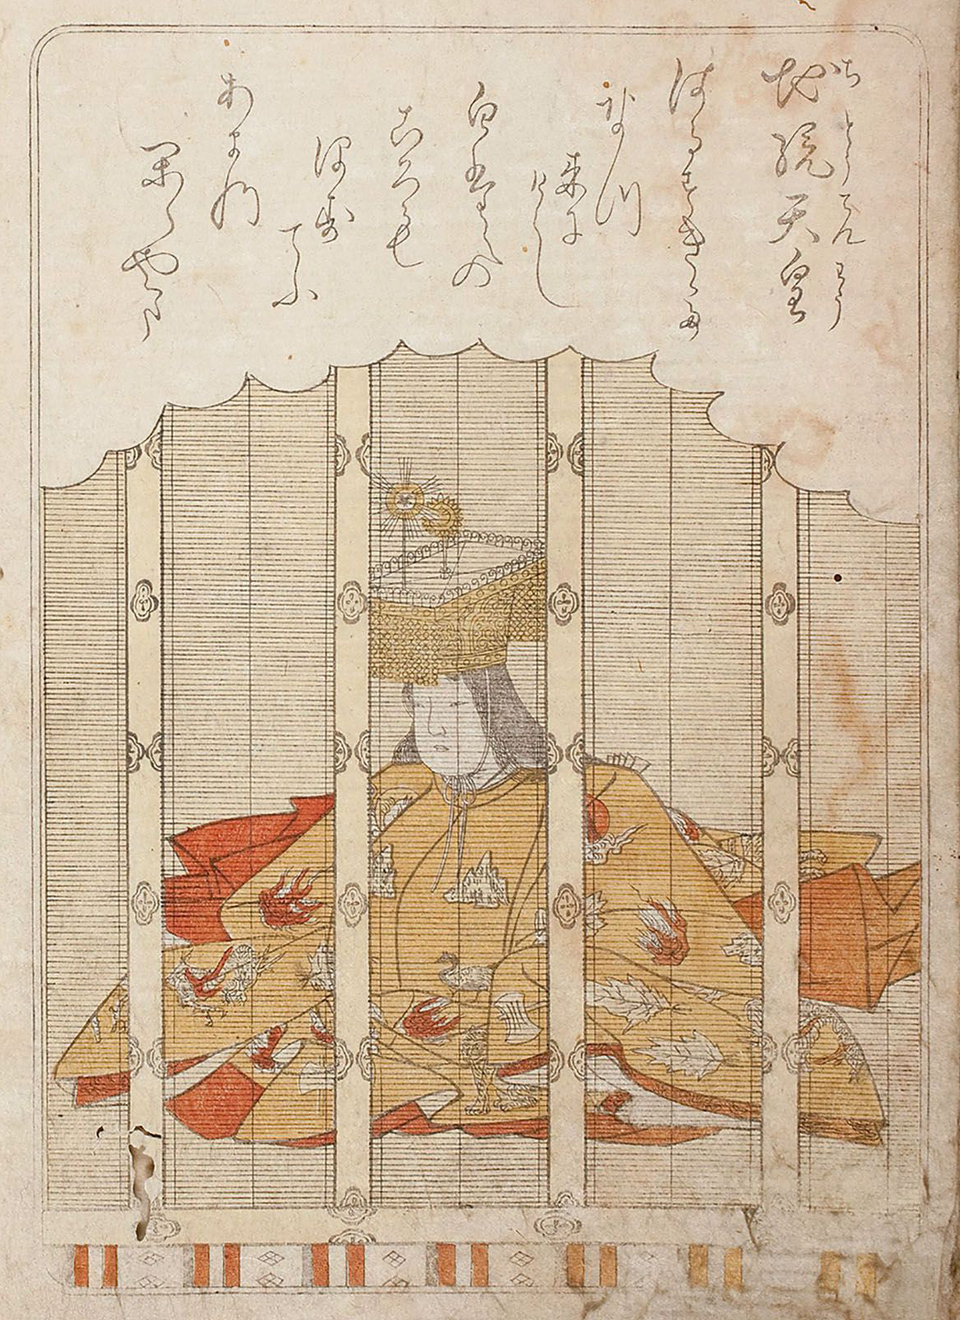 地統天皇
ちとうてんわう
はるすきて
なつ
来に
けらし
白妙の
ころも
ほす
てふ
あまの
かくやま